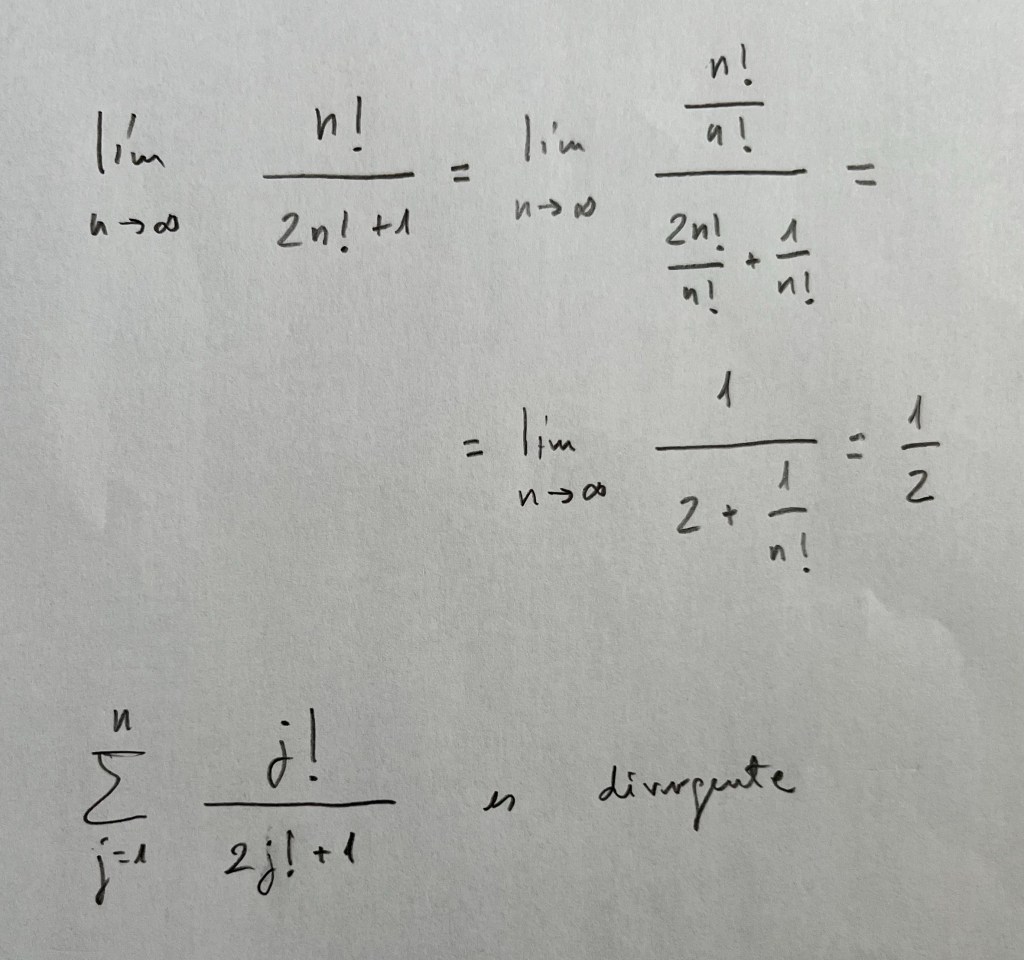 lím n→∞ n! / (2n! + 1) = lim n→∞ (n!/n!) / (2n!/n! + 1/n!) =
= lim n→∞ 1 / (2 + 1/n!) = 1/2
n ∑ j=1 j! / (2j! + 1) es divergente